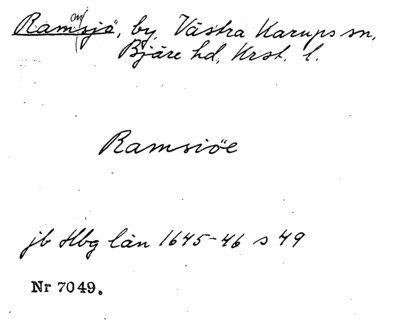 Ramsjö, by, Västra Karups sn,
Bjäre hd, Krst. l.
Ramsiöe
jb Hbg län 1645-46 s 49
Nr 7049.